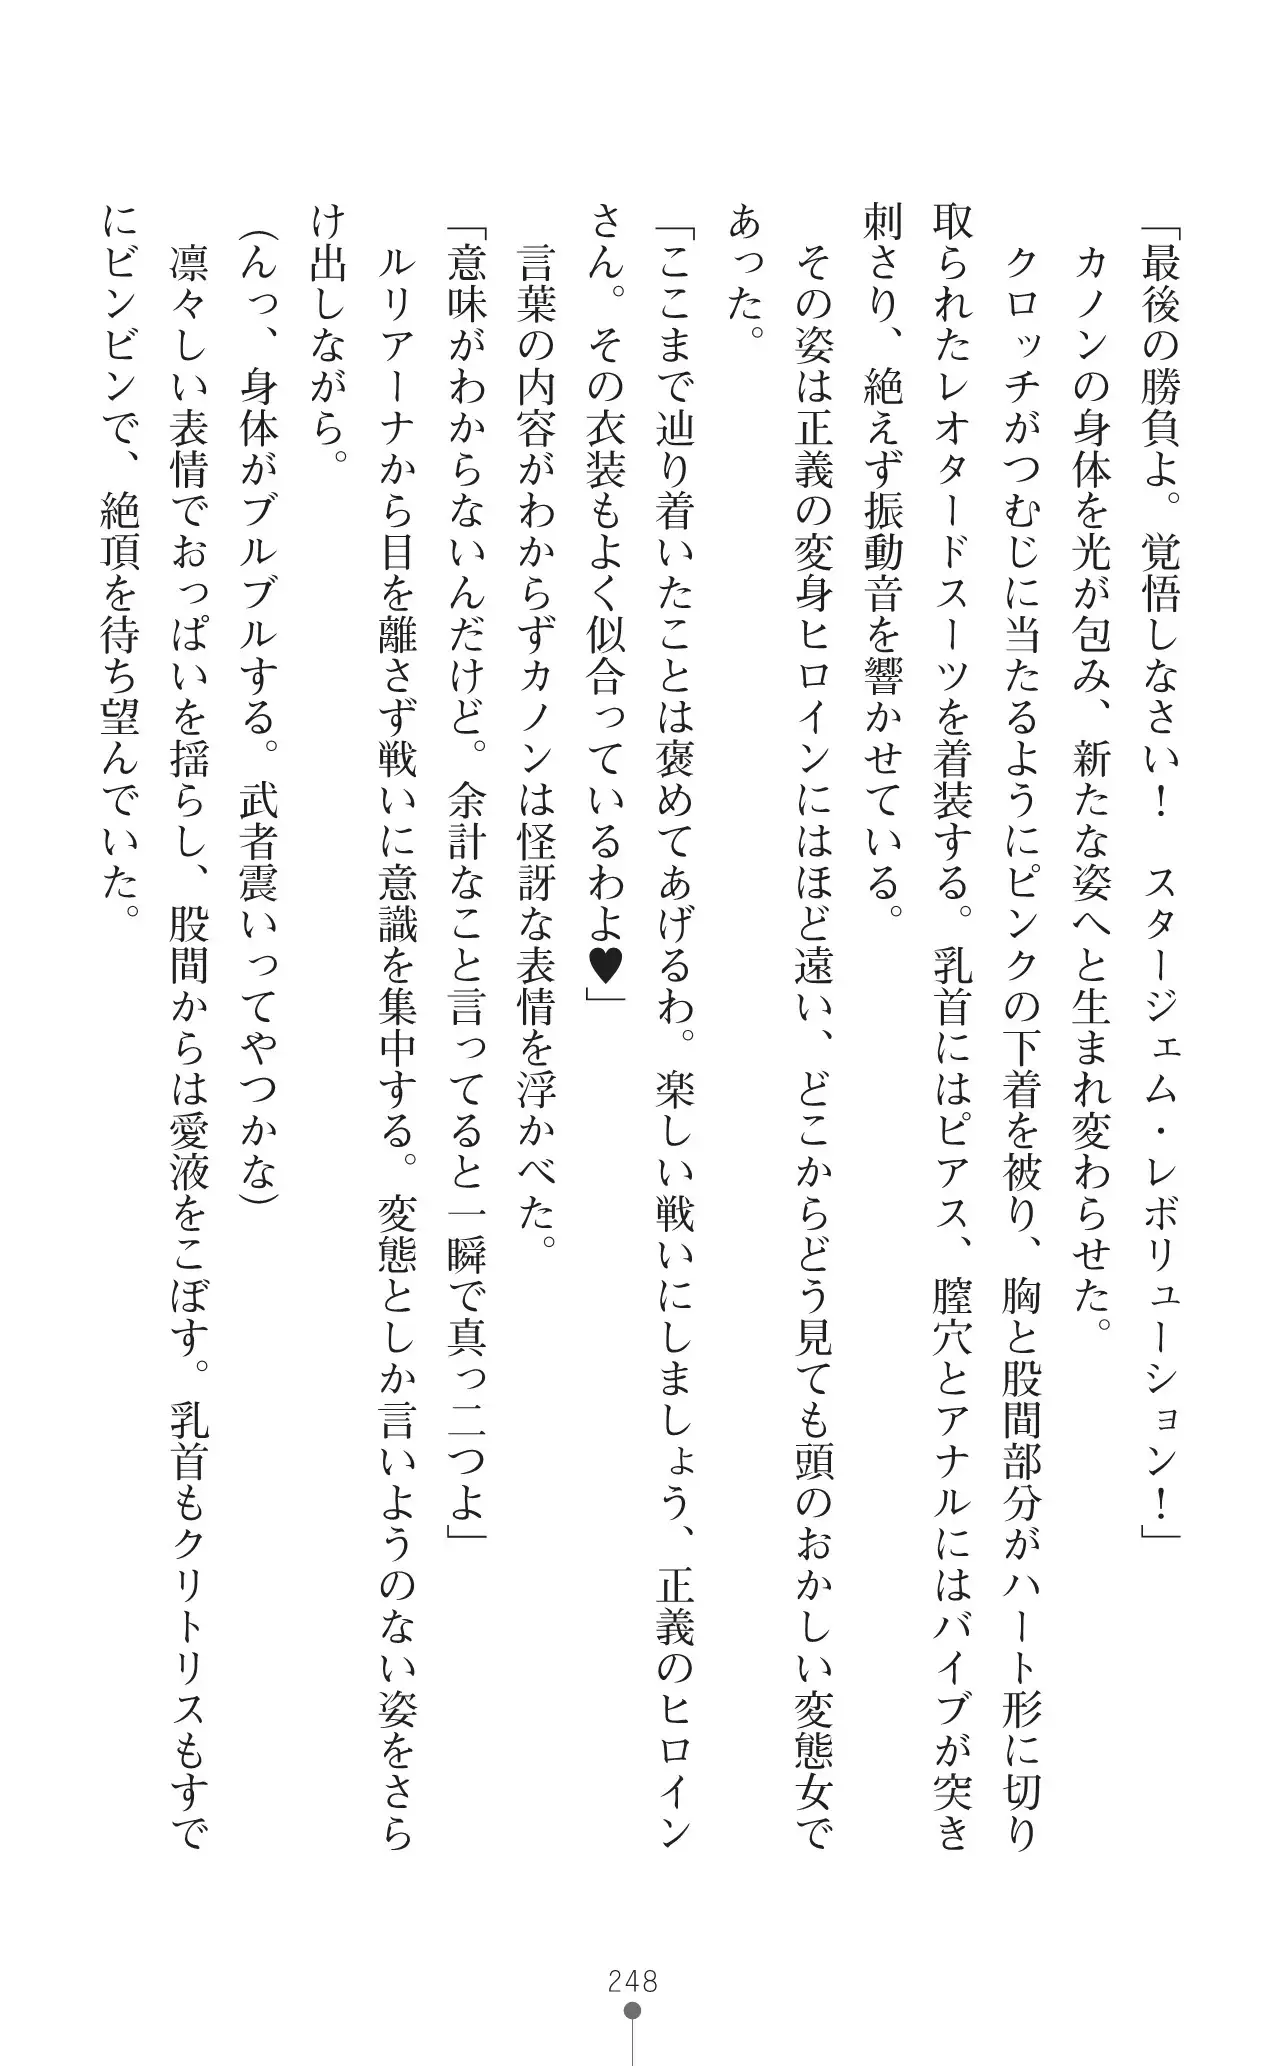 「最後の勝負よ。覚悟しなさい！　スタージェム・レボリューション！」
　カノンの身体を光が包み、新たな姿へと生まれ変わらせた。
　クロッチがつむじに当たるようにピンクの下着を被り、胸と股間部分がハート形に切り
取られたレオタードスーツを着装する。乳首にはピアス、膣穴とアナルにはバイブが突き
刺さり、絶えず振動音を響かせている。
　その姿は正義の変身ヒロインにはほど遠い、どこからどう見ても頭のおかしい変態女で
あった。
「ここまで辿り着いたことは褒めてあげるわ。楽しい戦いにしましょう、正義のヒロイン
さん。その衣装もよく似合っているわよ♥」
　言葉の内容がわからずカノンは怪訝な表情を浮かべた。
「意味がわからないんだけど。余計なこと言ってると一瞬で真っ二つよ」
　ルリアーナから目を離さず戦いに意識を集中する。変態としか言いようのない姿をさら
け出しながら。
（んっ、身体がブルブルする。武者震いってやつかな）
　凛々しい表情でおっぱいを揺らし、股間からは愛液をこぼす。乳首もクリトリスもすで
にビンビンで、絶頂を待ち望んでいた。
248